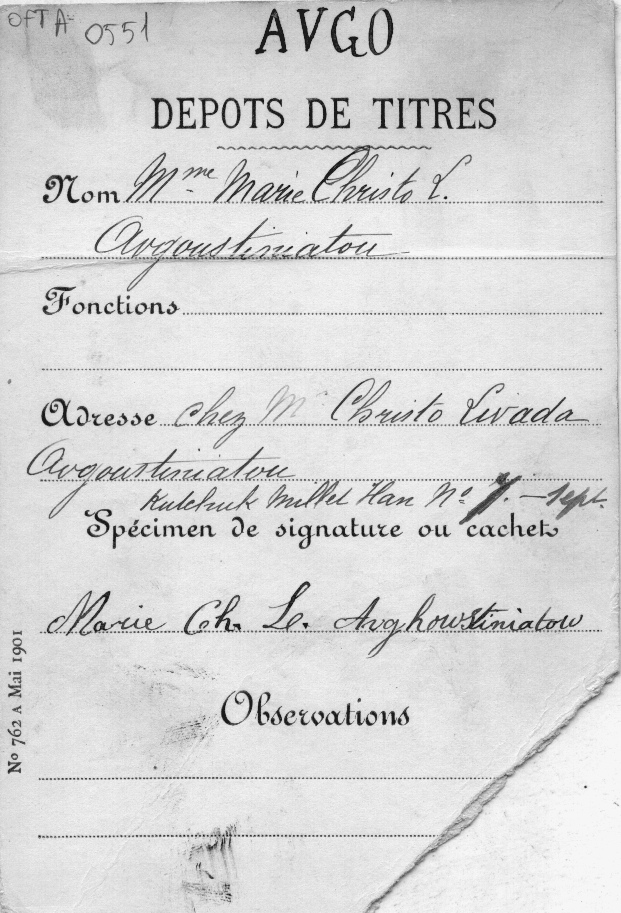 OFTA 0551
AVGO
DEPOTS DE TITRES
Nom Mme Marie Christo L.
Avgoustiniatou
Fonctions
Adresse chez Mr Christo Livada
Avgoustiniatou
Kutchuk Millet Han No 7. – Sept.
Spécimen de signature ou cachet
Marie Ch. L. Avghoustiniatou
Observations
No 762 A Mai 1901